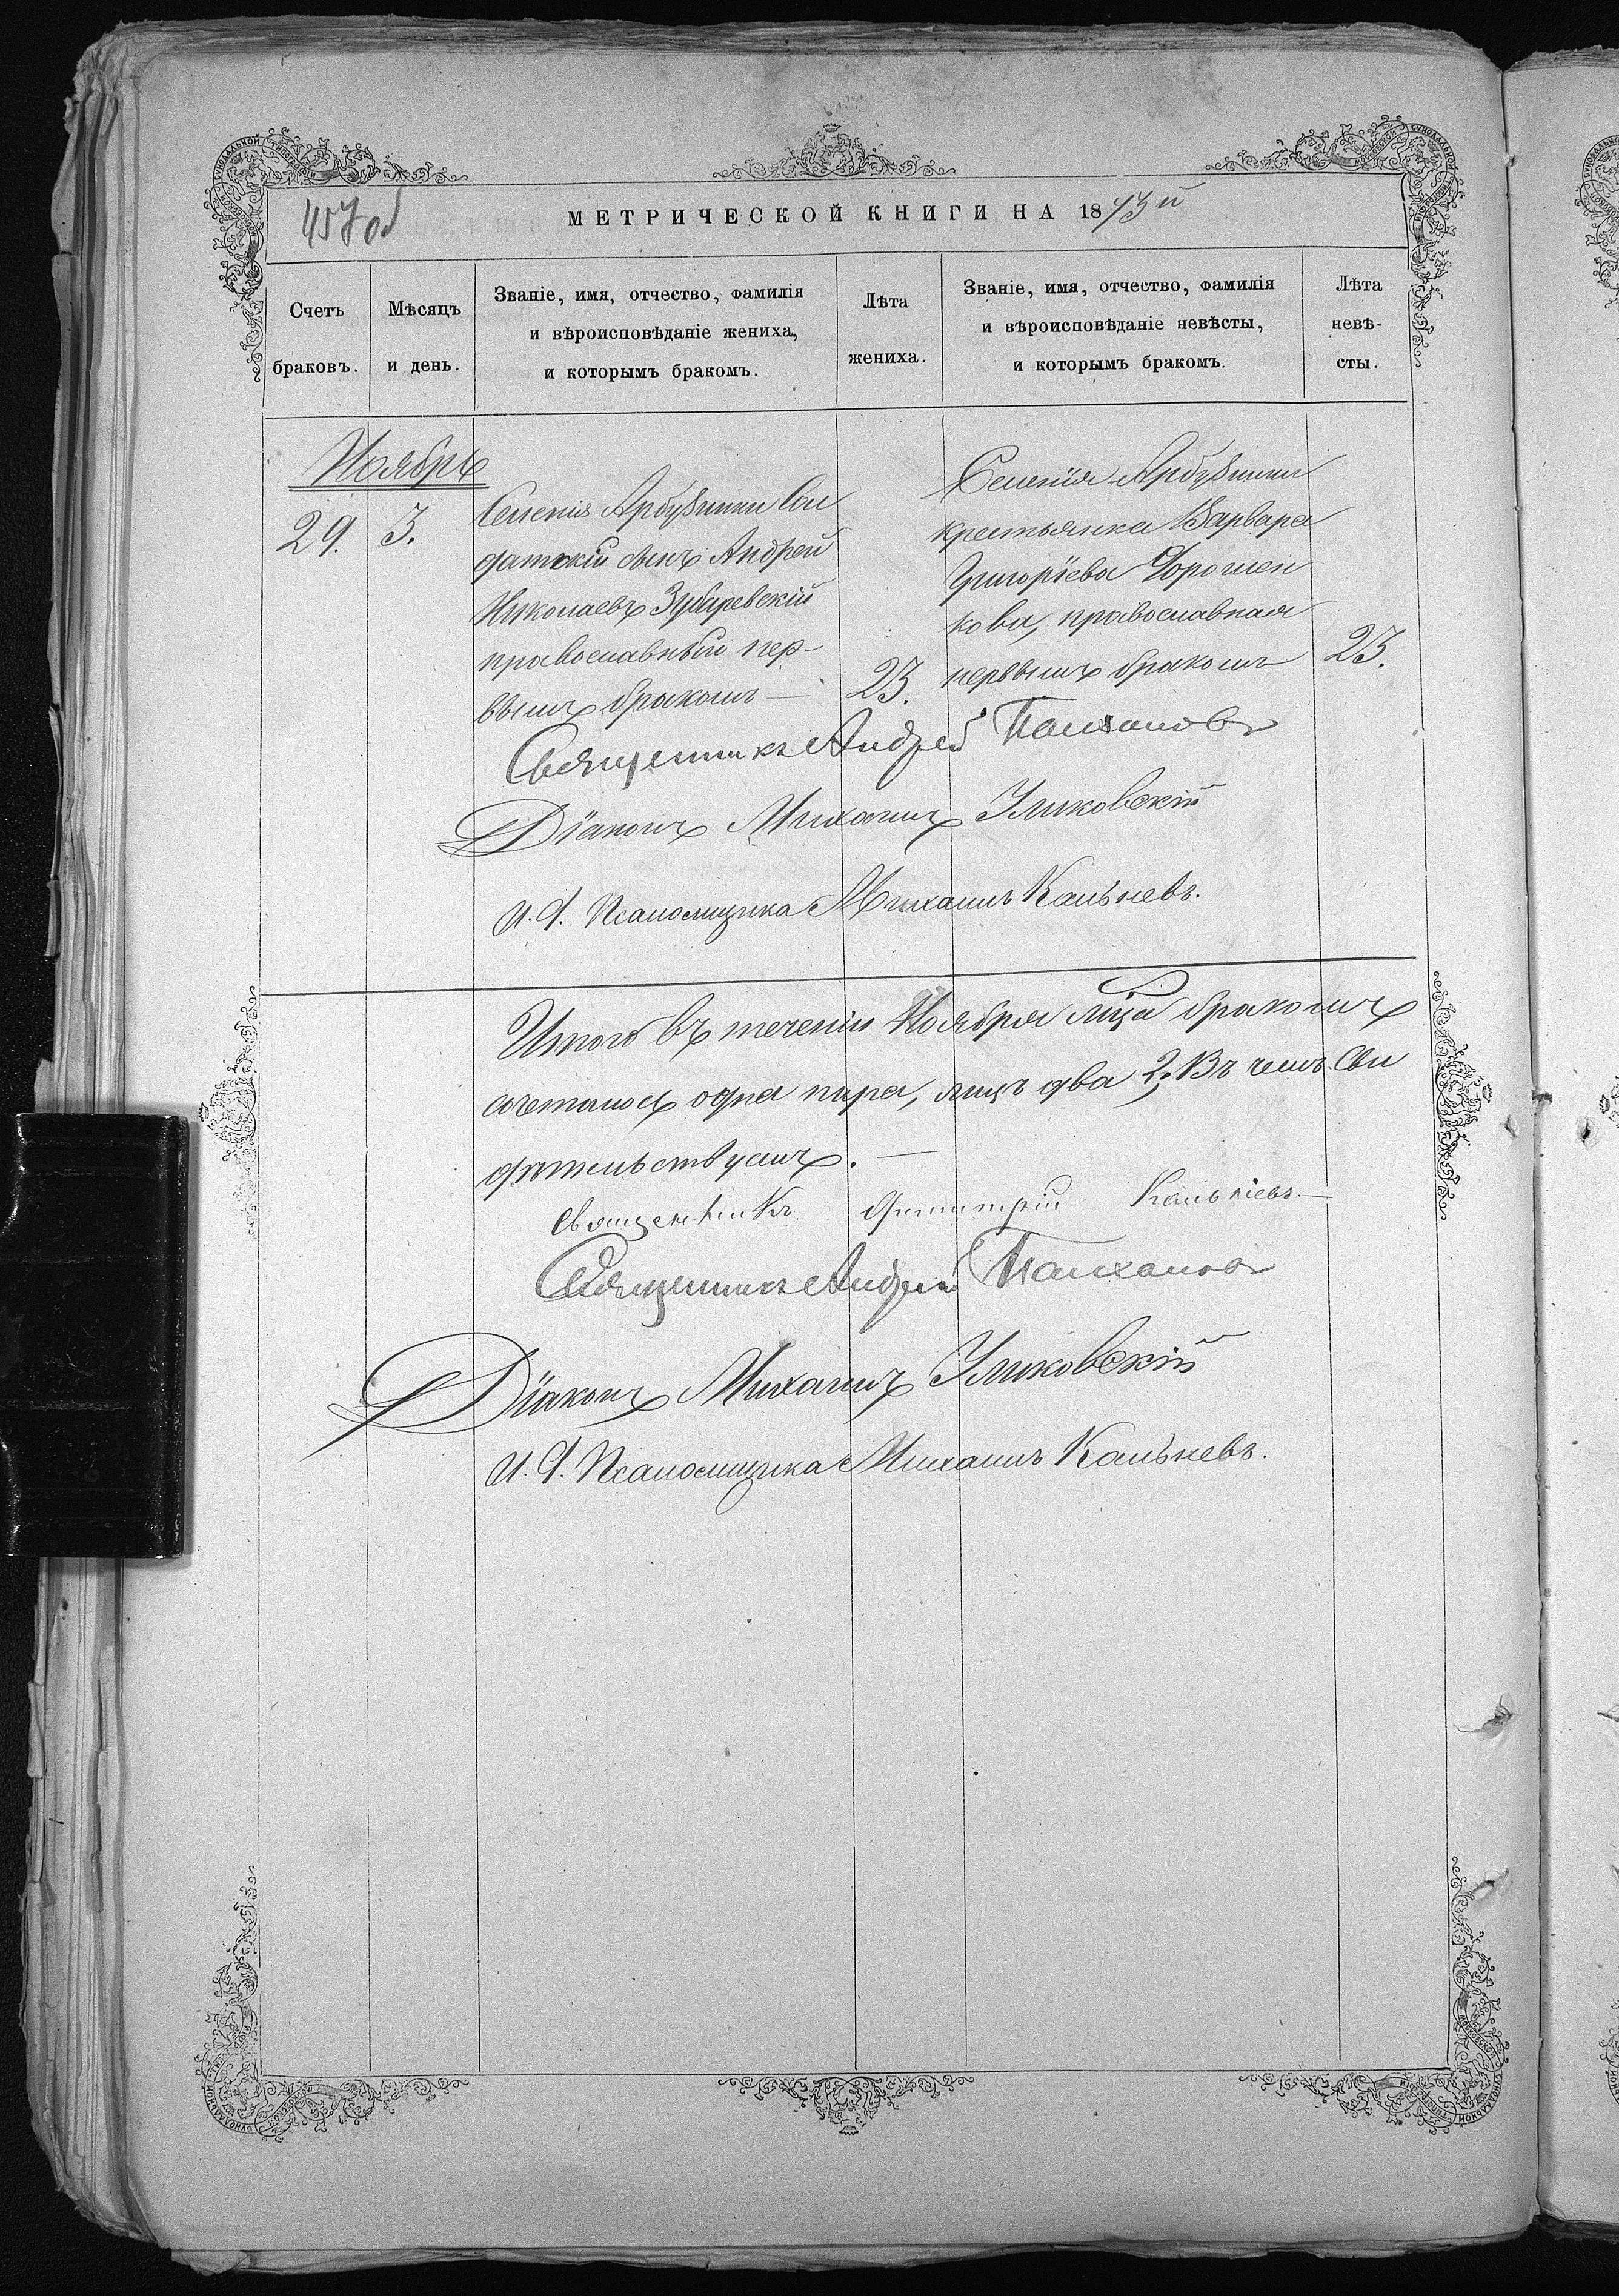 457 об
МЕТРИЧЕСКОЙ КНИГИ НА 1873й
Счетъ
браковъ.
Мѣсяцъ
и день.
Званіе, имя, отчество, фамилія
и вѣроисповѣданіе жениха,
и которымъ бракомъ.
Лѣта
жениха.
Званіе, имя, отчество, фамилія
и вѣроисповѣданіе невѣсты,
и которымъ бракомъ.
Лѣта
невѣ-
сты.
Ноябрь
29.
3.
Селенія Арбузинки Сол
датскій сынъ Андрей
Николаевъ Зубаревскій
православный пер-
вымъ бракомъ —
23.
Селенія Арбузинки
крестьянка Варвара
Григоріева Дорошен
кова, православная
первымъ бракомъ
23.
Священникъ Андрей
Діаконъ Михаилъ
И. д. Псаломщика Михаилъ Кальневъ.
Итого въ теченіи Ноября мца бракомъ
сочеталось одна пара, лицъ два 2; Въ чемъ Сви
дѣтельствуемъ. —
Священникъ Димитрій Кальневъ —
Священникъ Андрей
Діаконъ Михаилъ
И. д. Псаломщика Михаилъ Кальневъ.